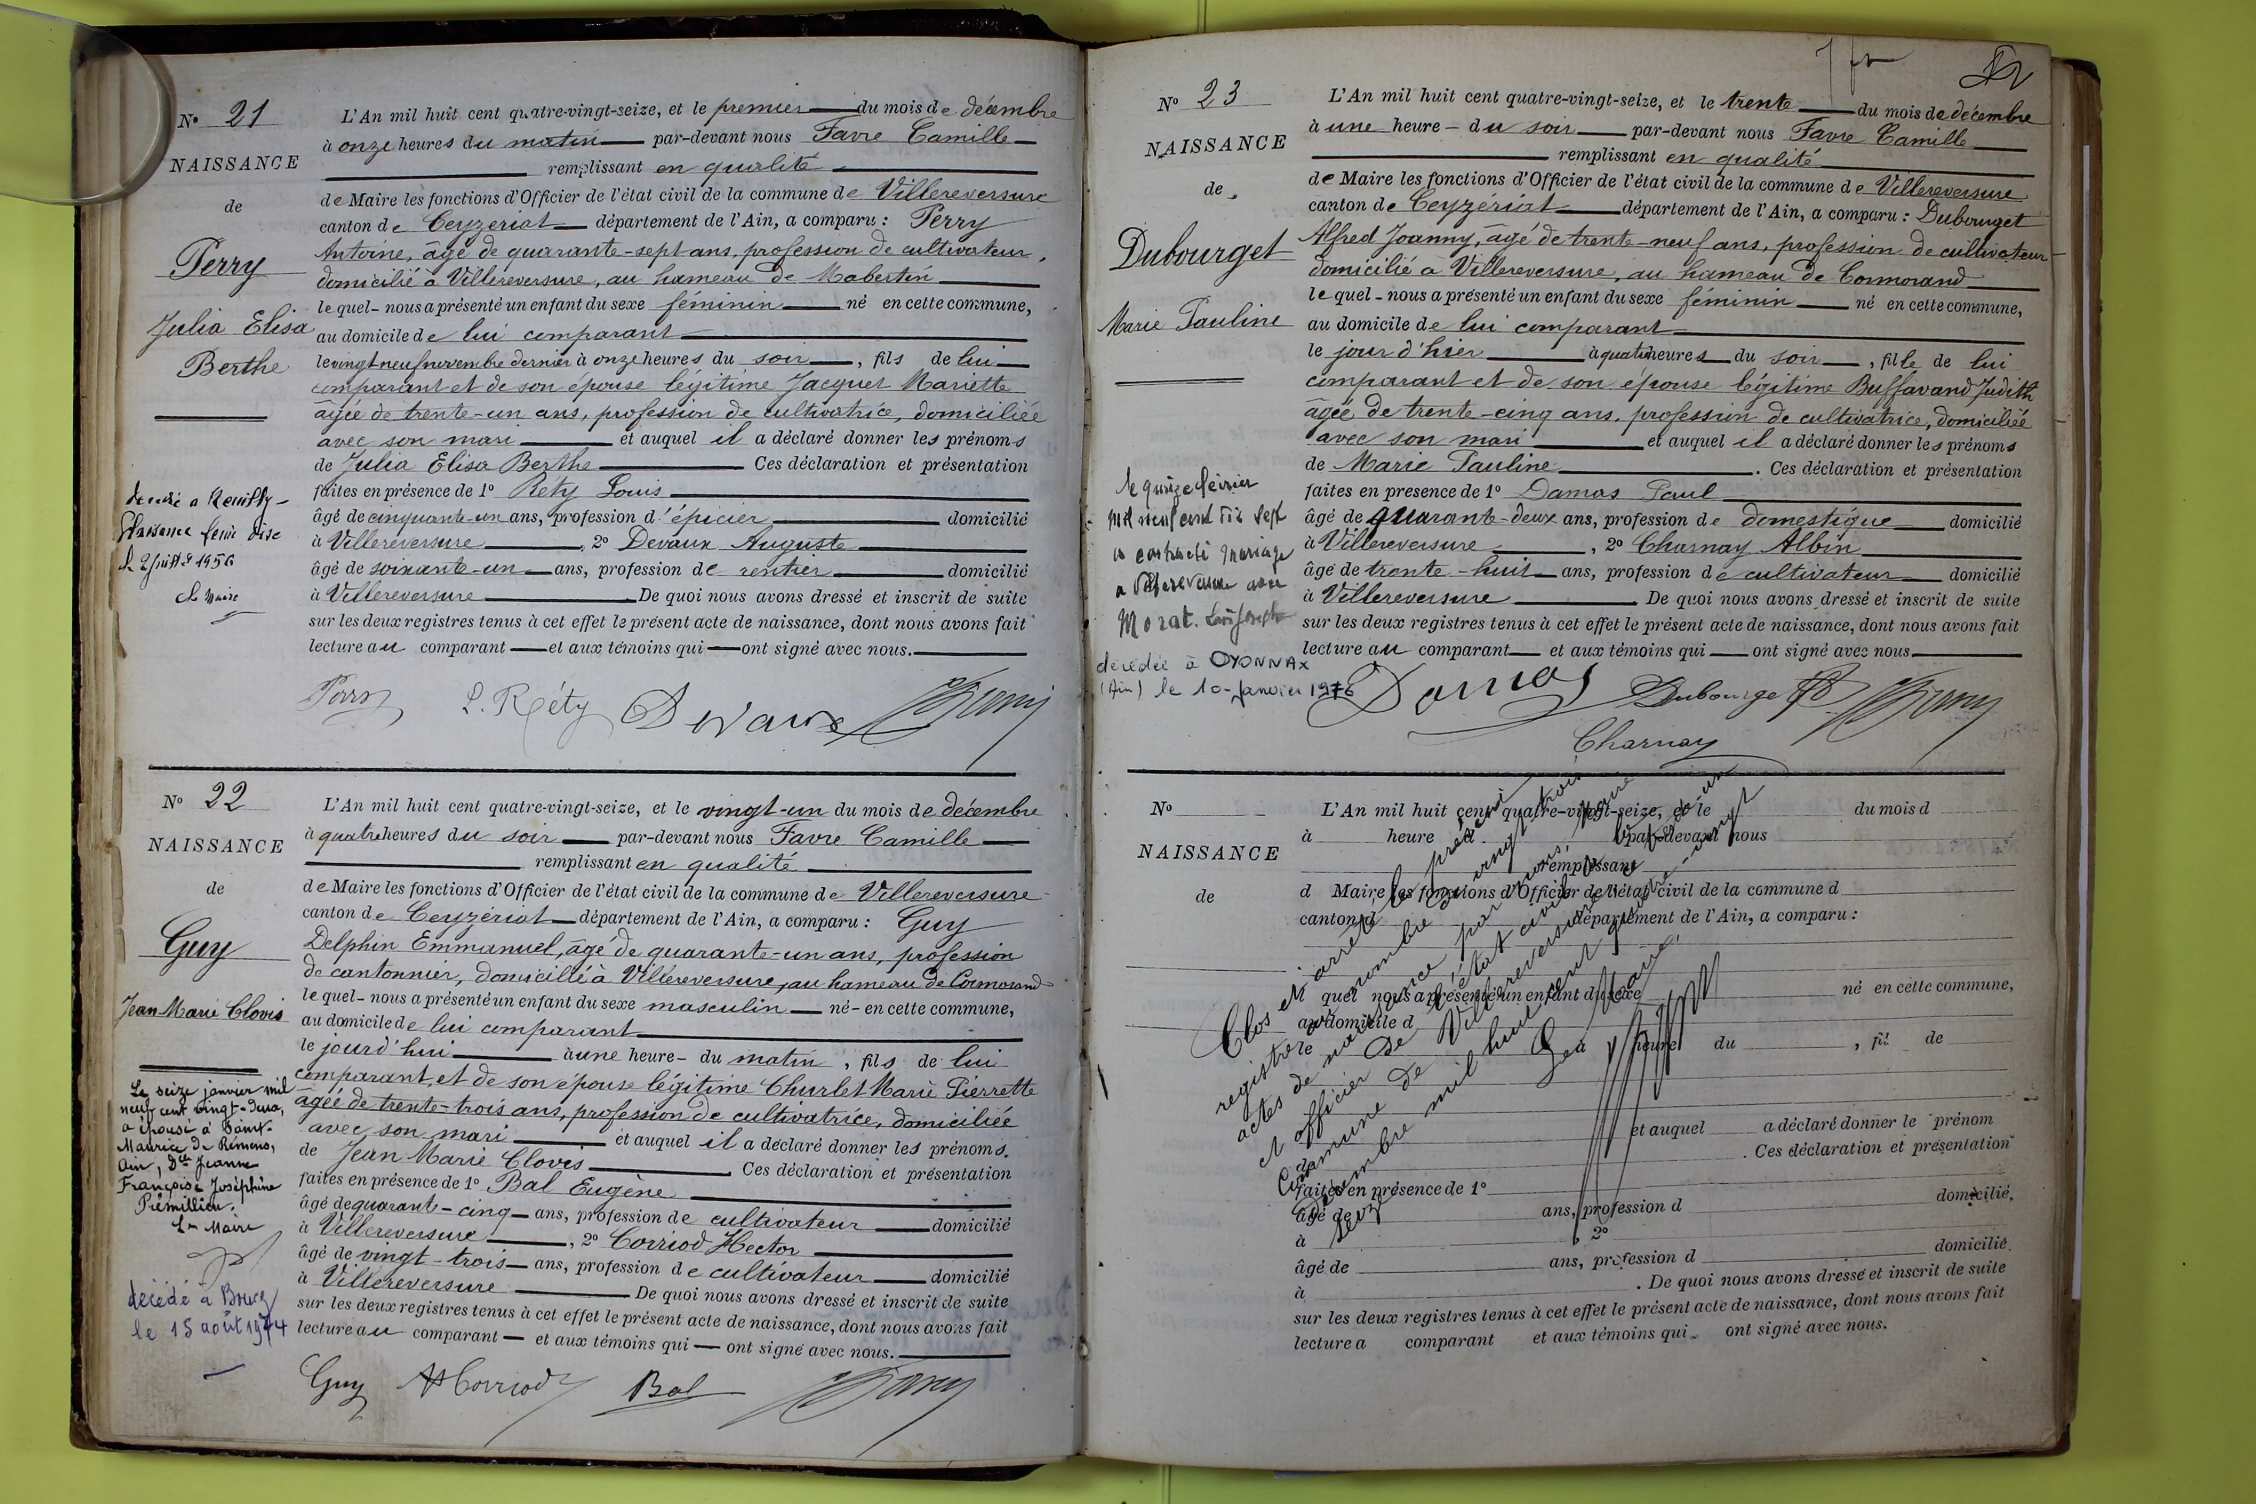 N° 21
NAISSANCE
de
Perry
Julia Elisa
Berthe
L'An mil huit cent quatre-vingt-seize, et le premier du mois de décembre
à onze heures du matin par-devant nous Favre Camille
remplissant en qualité
de Maire les fonctions d'Officier de l'état civil de la commune de Villereversure
canton de Ceyzériat département de l'Ain, a comparu : Perry
Antoine, âgé de quarante-sept ans, profession de cultivateur,
domicilié à Villereversure, au hameau de Mabertin
le quel - nous a présenté un enfant du sexe féminin né en cette commune,
au domicile de lui comparant
le vingt neuf novembre dernier à onze heures du soir, fils de lui
comparant et de son épouse légitime Jacquet Mariette
âgée de trente-un ans, profession de cultivatrice, domiciliée
avec son mari et auquel il a déclaré donner les prénoms
de Julia Elisa Berthe Ces déclaration et présentation
faites en présence de 1° Réty Louis
âgé de cinquante-un ans, profession d'épicier domicilié
à Villereversure, 2° Devaux Auguste
âgé de soixante-un ans, profession de rentier domicilié
à Villereversure De quoi nous avons dressé et inscrit de suite
sur les deux registres tenus à cet effet le présent acte de naissance, dont nous avons fait
lecture au comparant et aux témoins qui ont signé avec nous.
1956
Le Maire
Perry L. Réty Devaux
N° 22
NAISSANCE
de
Guy
Jean Marie Clovis
L'An mil huit cent quatre-vingt-seize, et le vingt-un du mois de décembre
à quatre heures du soir par-devant nous Favre Camille
remplissant en qualité
de Maire les fonctions d'Officier de l'état civil de la commune de Villereversure
canton de Ceyzériat département de l'Ain, a comparu : Guy
Delphin Emmanuel, âgé de quarante-un ans, profession
de cantonnier, domicilié à Villereversure, au hameau de Cormorand
le quel - nous a présenté un enfant du sexe masculin né - en cette commune,
au domicile de lui comparant
le jourd'hui à une heure - du matin, fils de lui
comparant, et de son épouse légitime Churlet Marie Pierrette
âgée de trente-trois ans, profession de cultivatrice, domiciliée
avec son mari et auquel il a déclaré donner les prénoms.
de Jean Marie Clovis Ces déclaration et présentation
faites en présence de 1° Bal Eugène
âgé de quarante-cinq ans, profession de cultivateur domicilié
à Villereversure, 2° Corriod Hector
âgé de vingt-trois ans, profession de cultivateur domicilié
à Villereversure De quoi nous avons dressé et inscrit de suite
sur les deux registres tenus à cet effet le présent acte de naissance, dont nous avons fait
lecture au comparant et aux témoins qui ont signé avec nous.
Le seize janvier mil
neuf cent vingt-deux,
a épousé à Saint-
Maurice de Rémens,
Ain, Dlle Jeanne
Françoise Joséphine
Prémillieu.
Le Maire
décédé à Bourg
le 15 août 1974
Guy H Corriod Bal
N° 23
NAISSANCE
de
Dubourget
Marie Pauline
L'An mil huit cent quatre-vingt-seize, et le trente du mois de décembre
à une heure - du soir par-devant nous Favre Camille
remplissant en qualité
de Maire les fonctions d'Officier de l'état civil de la commune de Villereversure
canton de Ceyzériat département de l'Ain, a comparu : Dubourget
Alfred Joanny, âgé de trente-neuf ans, profession de cultivateur
domicilié à Villereversure, au hameau de Cormorand
le quel - nous a présenté un enfant du sexe féminin né en cette commune,
au domicile de lui comparant
le jour d'hier à quatre heures du soir, fille de lui
comparant et de son épouse légitime Buffavand Judith
âgée de trente-cinq ans, profession de cultivatrice, domiciliée
avec son mari et auquel il a déclaré donner les prénoms
de Marie Pauline. Ces déclaration et présentation
faites en présence de 1° Damas Paul
âgé de quarante-deux ans, profession de domestique domicilié
à Villereversure, 2° Charnay Albin
âgé de trente-huit ans, profession de cultivateur domicilié
à Villereversure De quoi nous avons dressé et inscrit de suite
sur les deux registres tenus à cet effet le présent acte de naissance, dont nous avons fait
lecture au comparant et aux témoins qui ont signé avec nous
le quinze février
mil neuf cent dix sept
a contracté mariage
a Villereversure avec
Morat. Louis Joseph
décédée à OYONNAX
(Ain) le 10 Janvier 1976
Damas Dubourget
Charnay
N°
NAISSANCE
de
L'An mil huit cent quatre-vingt-seize, et le du mois d
à heure d par-devant nous
remplissant
d Maire les fonctions d'Officier de l'état civil de la commune d
canton d département de l'Ain, a comparu :
l quel nous a présenté un enfant du sexe né en cette commune,
au domicile d
le à heure du , fil de
et auquel a déclaré donner le prénom
de . Ces déclaration et présentation
faites en présence de 1°
âgé de ans, profession d domicilié,
à , 2°
âgé de ans, profession d domicilié
à . De quoi nous avons dressé et inscrit de suite
sur les deux registres tenus à cet effet le présent acte de naissance, dont nous avons fait
lecture a comparant et aux témoins qui ont signé avec nous.
Clos et arrêté le présent
registre au nombre de vingt trois
actes de naissance par nous, Maire
et officier de l'état civil de la
commune de Villereversure le trente-un
décembre mil huit cent quatre-vingt
seize
Le Maire,